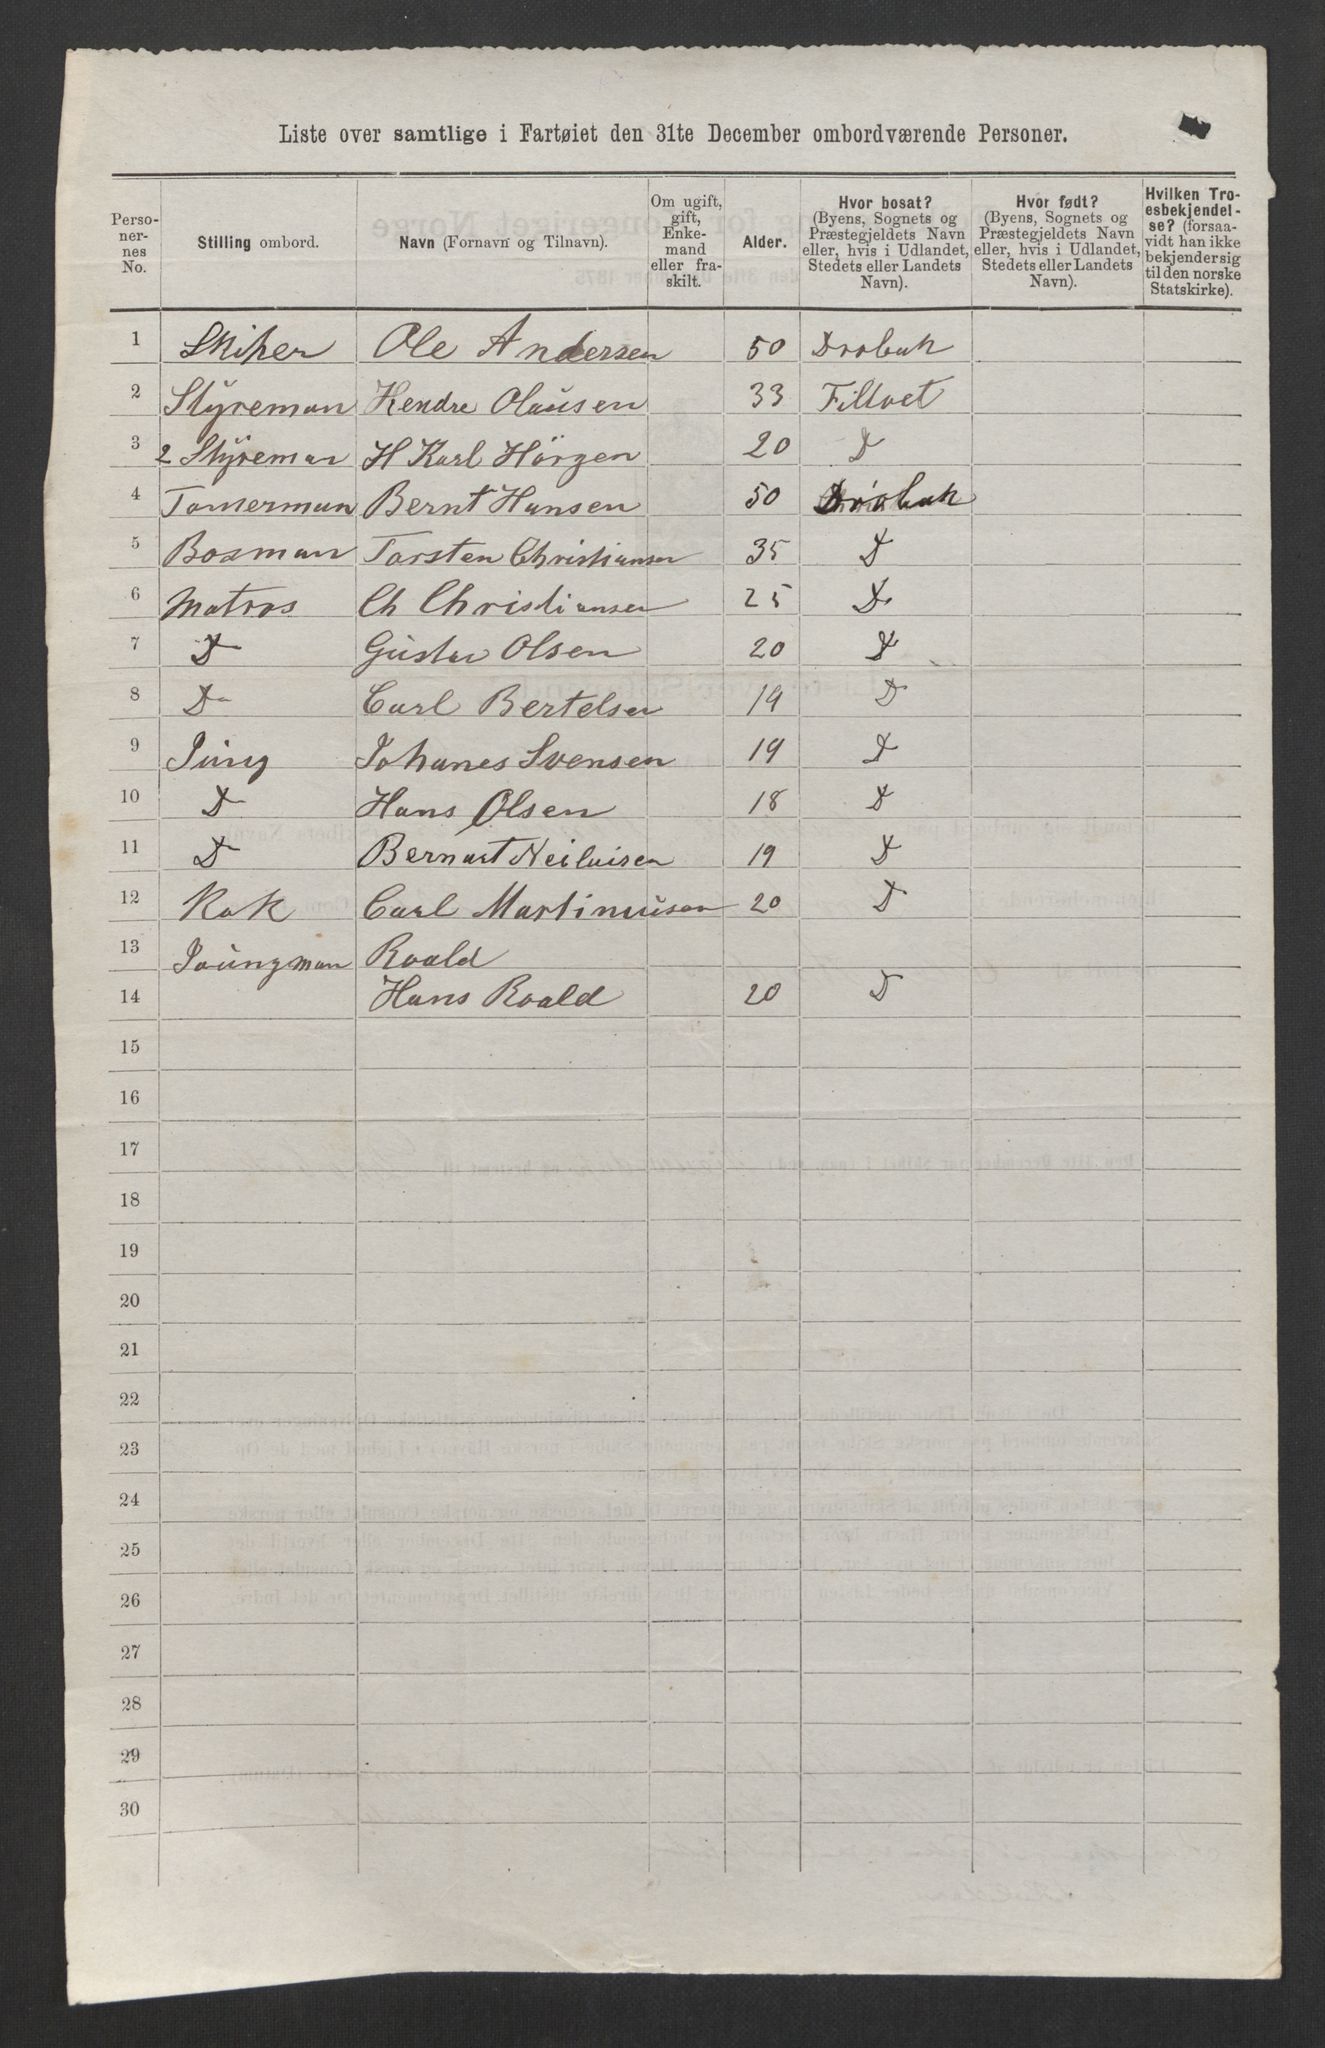 Liste over samtlige i Fartøiet den 31te December ombordværende Personer.
Perso-nernes No. | Stilling ombord. | Navn (Fornavn og Tilnavn). | Om ugift, gift, Enke-mand eller fra-skilt. | Alder. | Hvor bosat? (Byens, Sognets og Præstegjeldets Navn eller, hvis i Udlandet, Stedets eller Landets Navn). | Hvor født? (Byens, Sognets og Præstegjeldets Navn eller, hvis i Udlandet, Stedets eller Landets Navn). | Hvilken Tro-esbekjendel-se? (forsaa-vidt han ikke bekjender sig til den norske Statskirke).
1 Skiper Ole Andersen 50 Drobak
2 Styreman Hendre Olausen 33 Filtvet
3 2 Styreman H Karl Hörgen 20 D
4 Tomerman Bernt Hansen 50 Dröbak
5 Bosman Torsten Christiansen 35 D
6 Matros Ch Christiansen 25 D
7 D Gustav Olsen 20 D
8 Do Carl Bertelsen 19 D
9 Jung Johanes Svensen 19 D
10 D Hans Olsen 18 D
11 D Bernart 19 D
12 Kok Carl Martinusen 20 D
13 Joungman Roald
14 Hans Roald 20 D
15
16
17
18
19
20
21
22
23
24
25
26
27
28
29
30